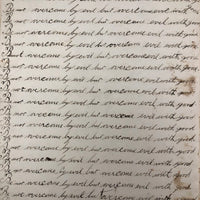 not overcome by evil but overcome evil with good
not overcome by evil but overcome evil with good
not overcome by evil but overcome evil with good
not overcome by evil but overcome evil with good
not overcome by evil but overcome evil with good
not overcome by evil but overcome evil with good
not overcome by evil but overcome evil with good
not overcome by evil but overcome evil with good
not overcome by evil but overcome evil with good
not overcome by evil but overcome evil with good
not overcome by evil but overcome evil with good
not overcome by evil but overcome evil with good
not overcome by evil but overcome evil with good
not overcome by evil but overcome evil with good